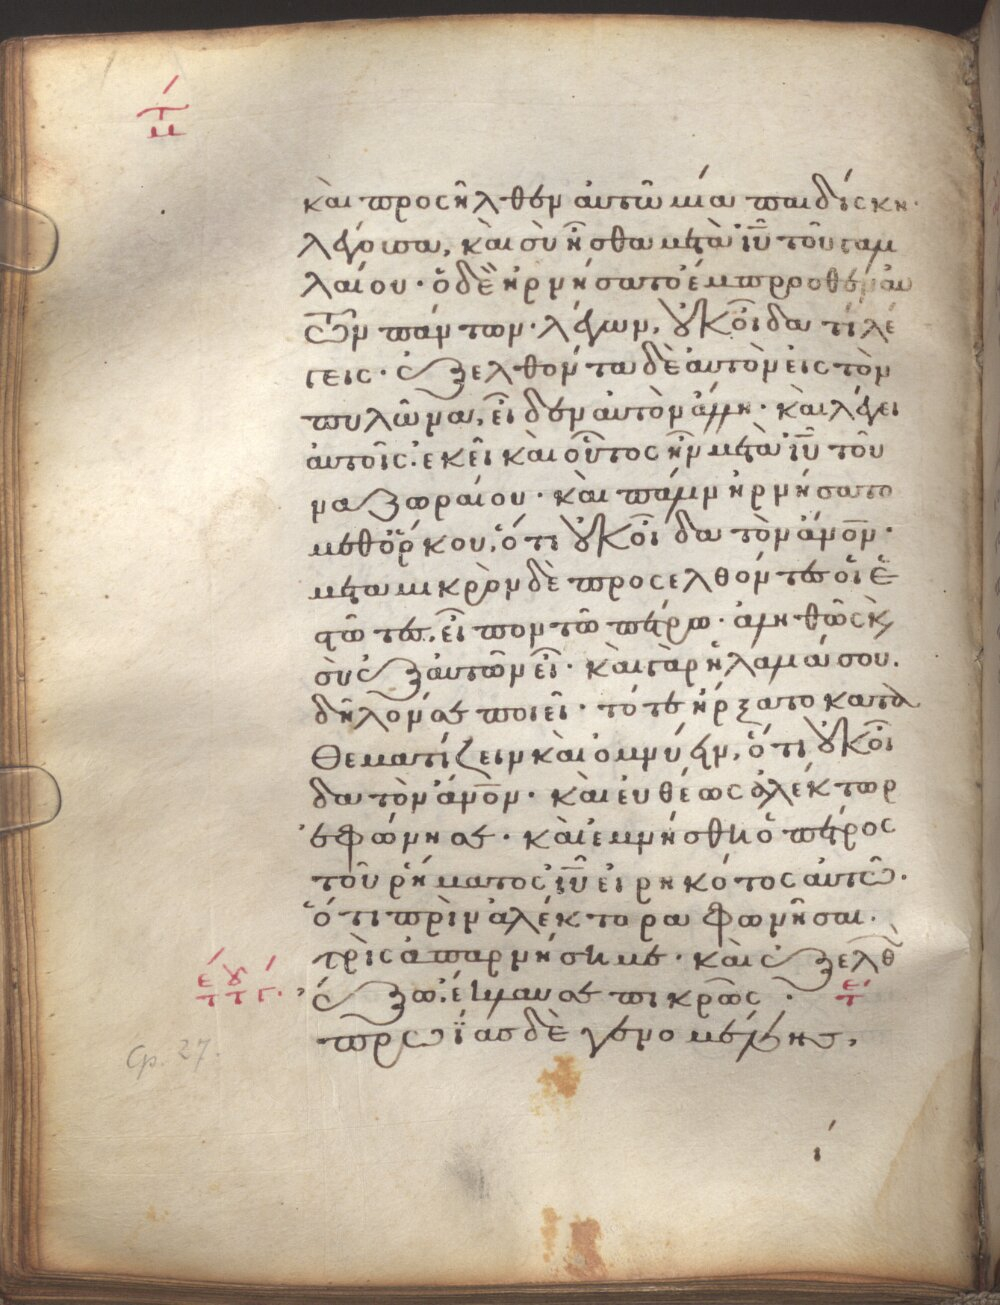 τ̅μ
καὶ προσῆλθεν αὐτῶ μία παιδίσκη·
λέγουσα, καὶ σὺ ἦσθα μετὰ ἰ̅υ̅ τοῦ γαλι
λαίου· ὁ δὲ ἠρνήσατο ἔμπροσθεν αὐ
τῶν πάντων· λέγων, οὐκ οἶδα τί λέ
γεις· ἐξελθόντα δὲ αὐτὸν εἰς τὸν
πυλῶνα, εἶδεν αὐτὸν ἄλλη· καὶ λέγει
αὐτοῖς· ἐκεῖ καὶ οὗτος ἦν μετὰ ἰ̅υ̅ τοῦ
ναζωραίου· καὶ πάλιν ἠρνήσατο
μεθ' ὅρκου, ὅτι οὐκ οἶδα τὸν ἄν̅ο̅ν·
μετὰ μικρὸν δὲ προσελθόντες οἱ ἑ
στῶτες, εἶπον τῶ πέτρω· ἀληθῶς κ̀
σὺ ἐξ αὐτῶν εἶ· καὶ γὰρ ἡ λαλιά σου.
δῆλόν σε ποιεῖ· τότε ἤρξατο κατα
θεματίζειν καὶ ὀμνύειν, ὅτι οὐκ οἶ
δα τὸν ἄν̅ο̅ν· καὶ εὐθέως ἀλέκτωρ
ἐφώνησε· καὶ ἐμνήσθη ὁ πέτρος
τοῦ ῥήματος ἰ̅υ̅ εἰρηκότος αὐτῶ·
ὅτι πρὶν ἀλέκτορα φωνῆσαι.
τρὶς ἀπαρνήση με· καὶ ἐξελθ
ἔξω, ἔκλαυσε πικρῶς·
πρωΐας δὲ γενομένης,
Ср. 27.
ι